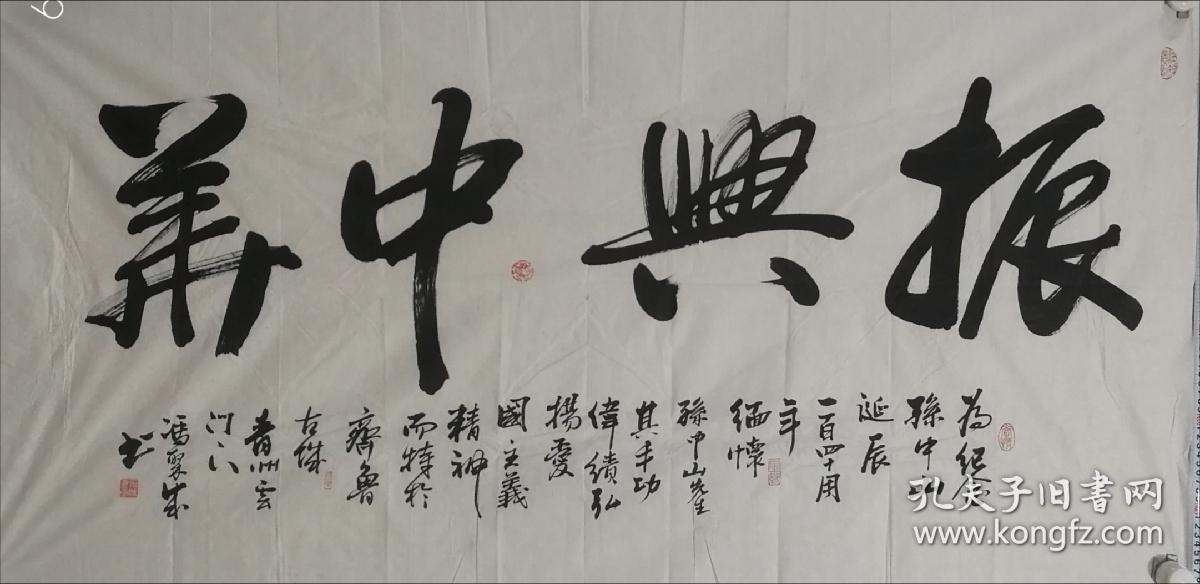 振興中華
為纪念
孫中山
誕辰
一百四十周
年
缅懷
孫中山先生
其丰功
偉績弘
揚愛
國主義
精神
而特於
齊魯
古城
青州雲
门下
馮聚成
书
孔夫子旧書网
www.kongfz.com